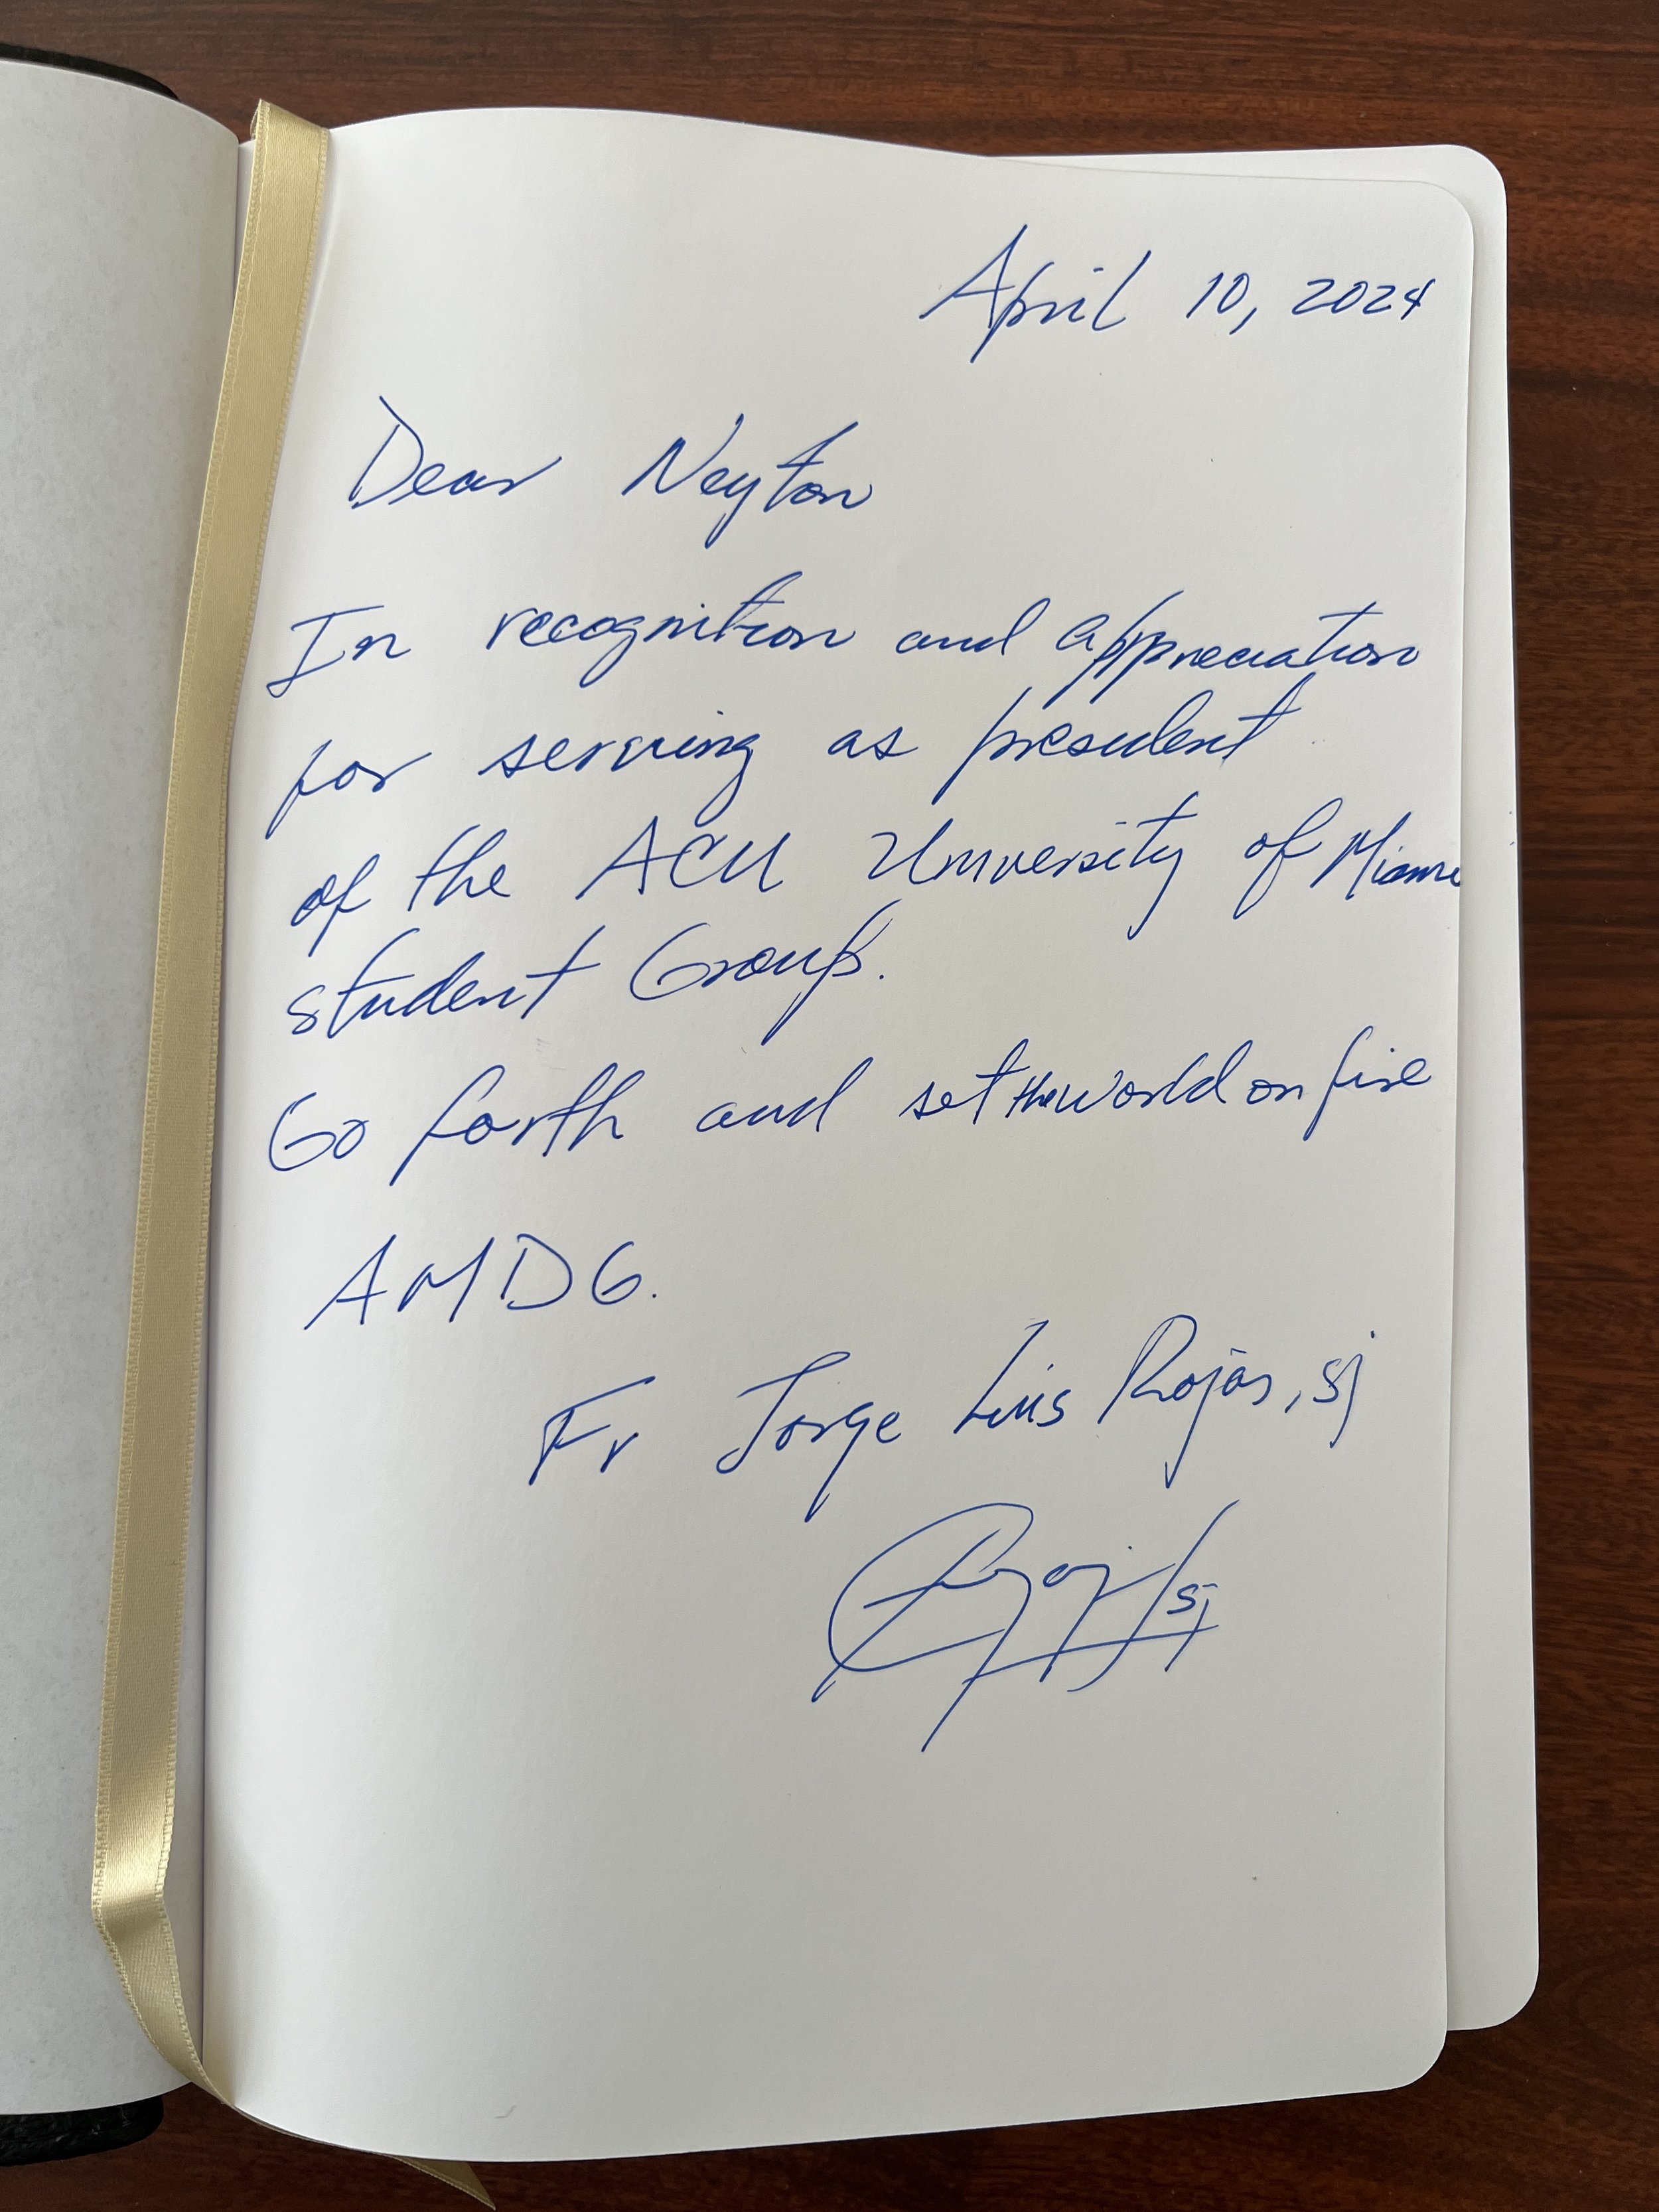 April 10, 2024
Dear Neyton
In recognition and appreciation
for serving as president
of the ACU University of Miami
student Group.
Go forth and set the world on fire
AMDG.
Fr Jorge Luis Rojas, sj
sj